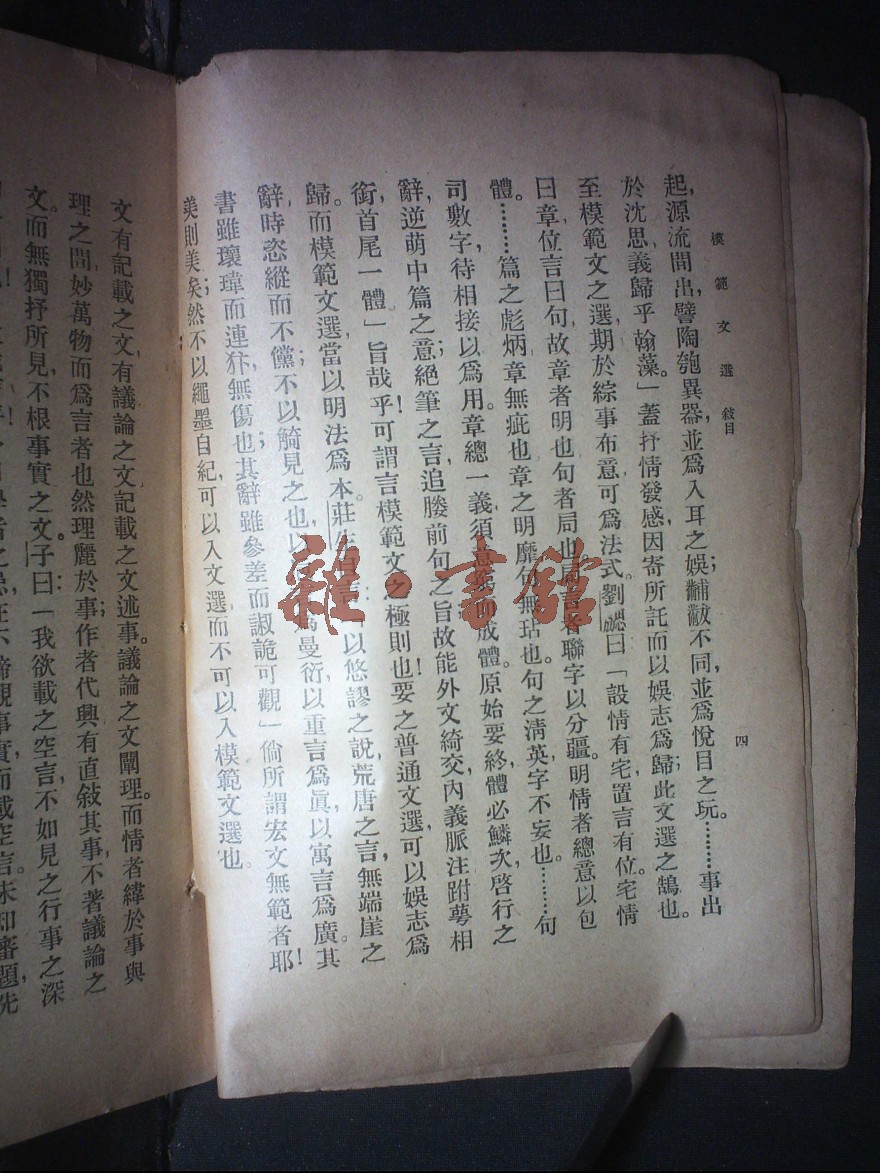 模範文選 敍目
四
起,源流間出譬陶匏異器,並爲入耳之娛;黼黻不同,並爲悅目之玩。………事出
於沈思,義歸乎翰藻。」蓋抒情發感,因寄所託而以娛志爲歸;此文選之鵠也。
至模範文之選,期於綜事布意可爲法式。劉勰曰「設情有宅,置言有位。宅情
曰章,位言曰句,故章者明也句者局也。局言者聯字以分疆。明情者總意以包
體。………篇之彪炳,章無疵也章之明靡,句無玷也。句之清英,字不妄也。………句
司數字,待相接以爲用。章總一義,須意窮而成體。原始要終,體必鱗次。啓行之
辭,逆萌中篇之意;絕筆之言,追媵前句之旨;故能外文綺交,內義脈注跗萼相
銜,首尾一體」旨哉乎!可謂言模範文之極則也!要之普通文選,可以娛志爲
歸。而模範文選,當以明法爲本。莊生有言:「以悠謬之說,荒唐之言,無端崖之
辭,時恣縱而不儻;不以觭見之也,以爲曼衍,以重言爲眞,以寓言爲廣。其
書雖瓌瑋而連犿無傷也;其辭雖參差而諔詭可觀」倘所謂宏文無範者耶!
美則美矣;然不以繩墨自紀,可以入文選,而不可以入模範文選也。
文有記載之文有議論之文記載之文述事。議論之文闡理。而情者緯於事與
理之間,妙萬物而爲言者也然理麗於事;作者代興,有直敍其事,不著議論之
文。而無獨抒所見,不根事實之文。子曰:「我欲載之空言,不如見之行事之深
雜·書館